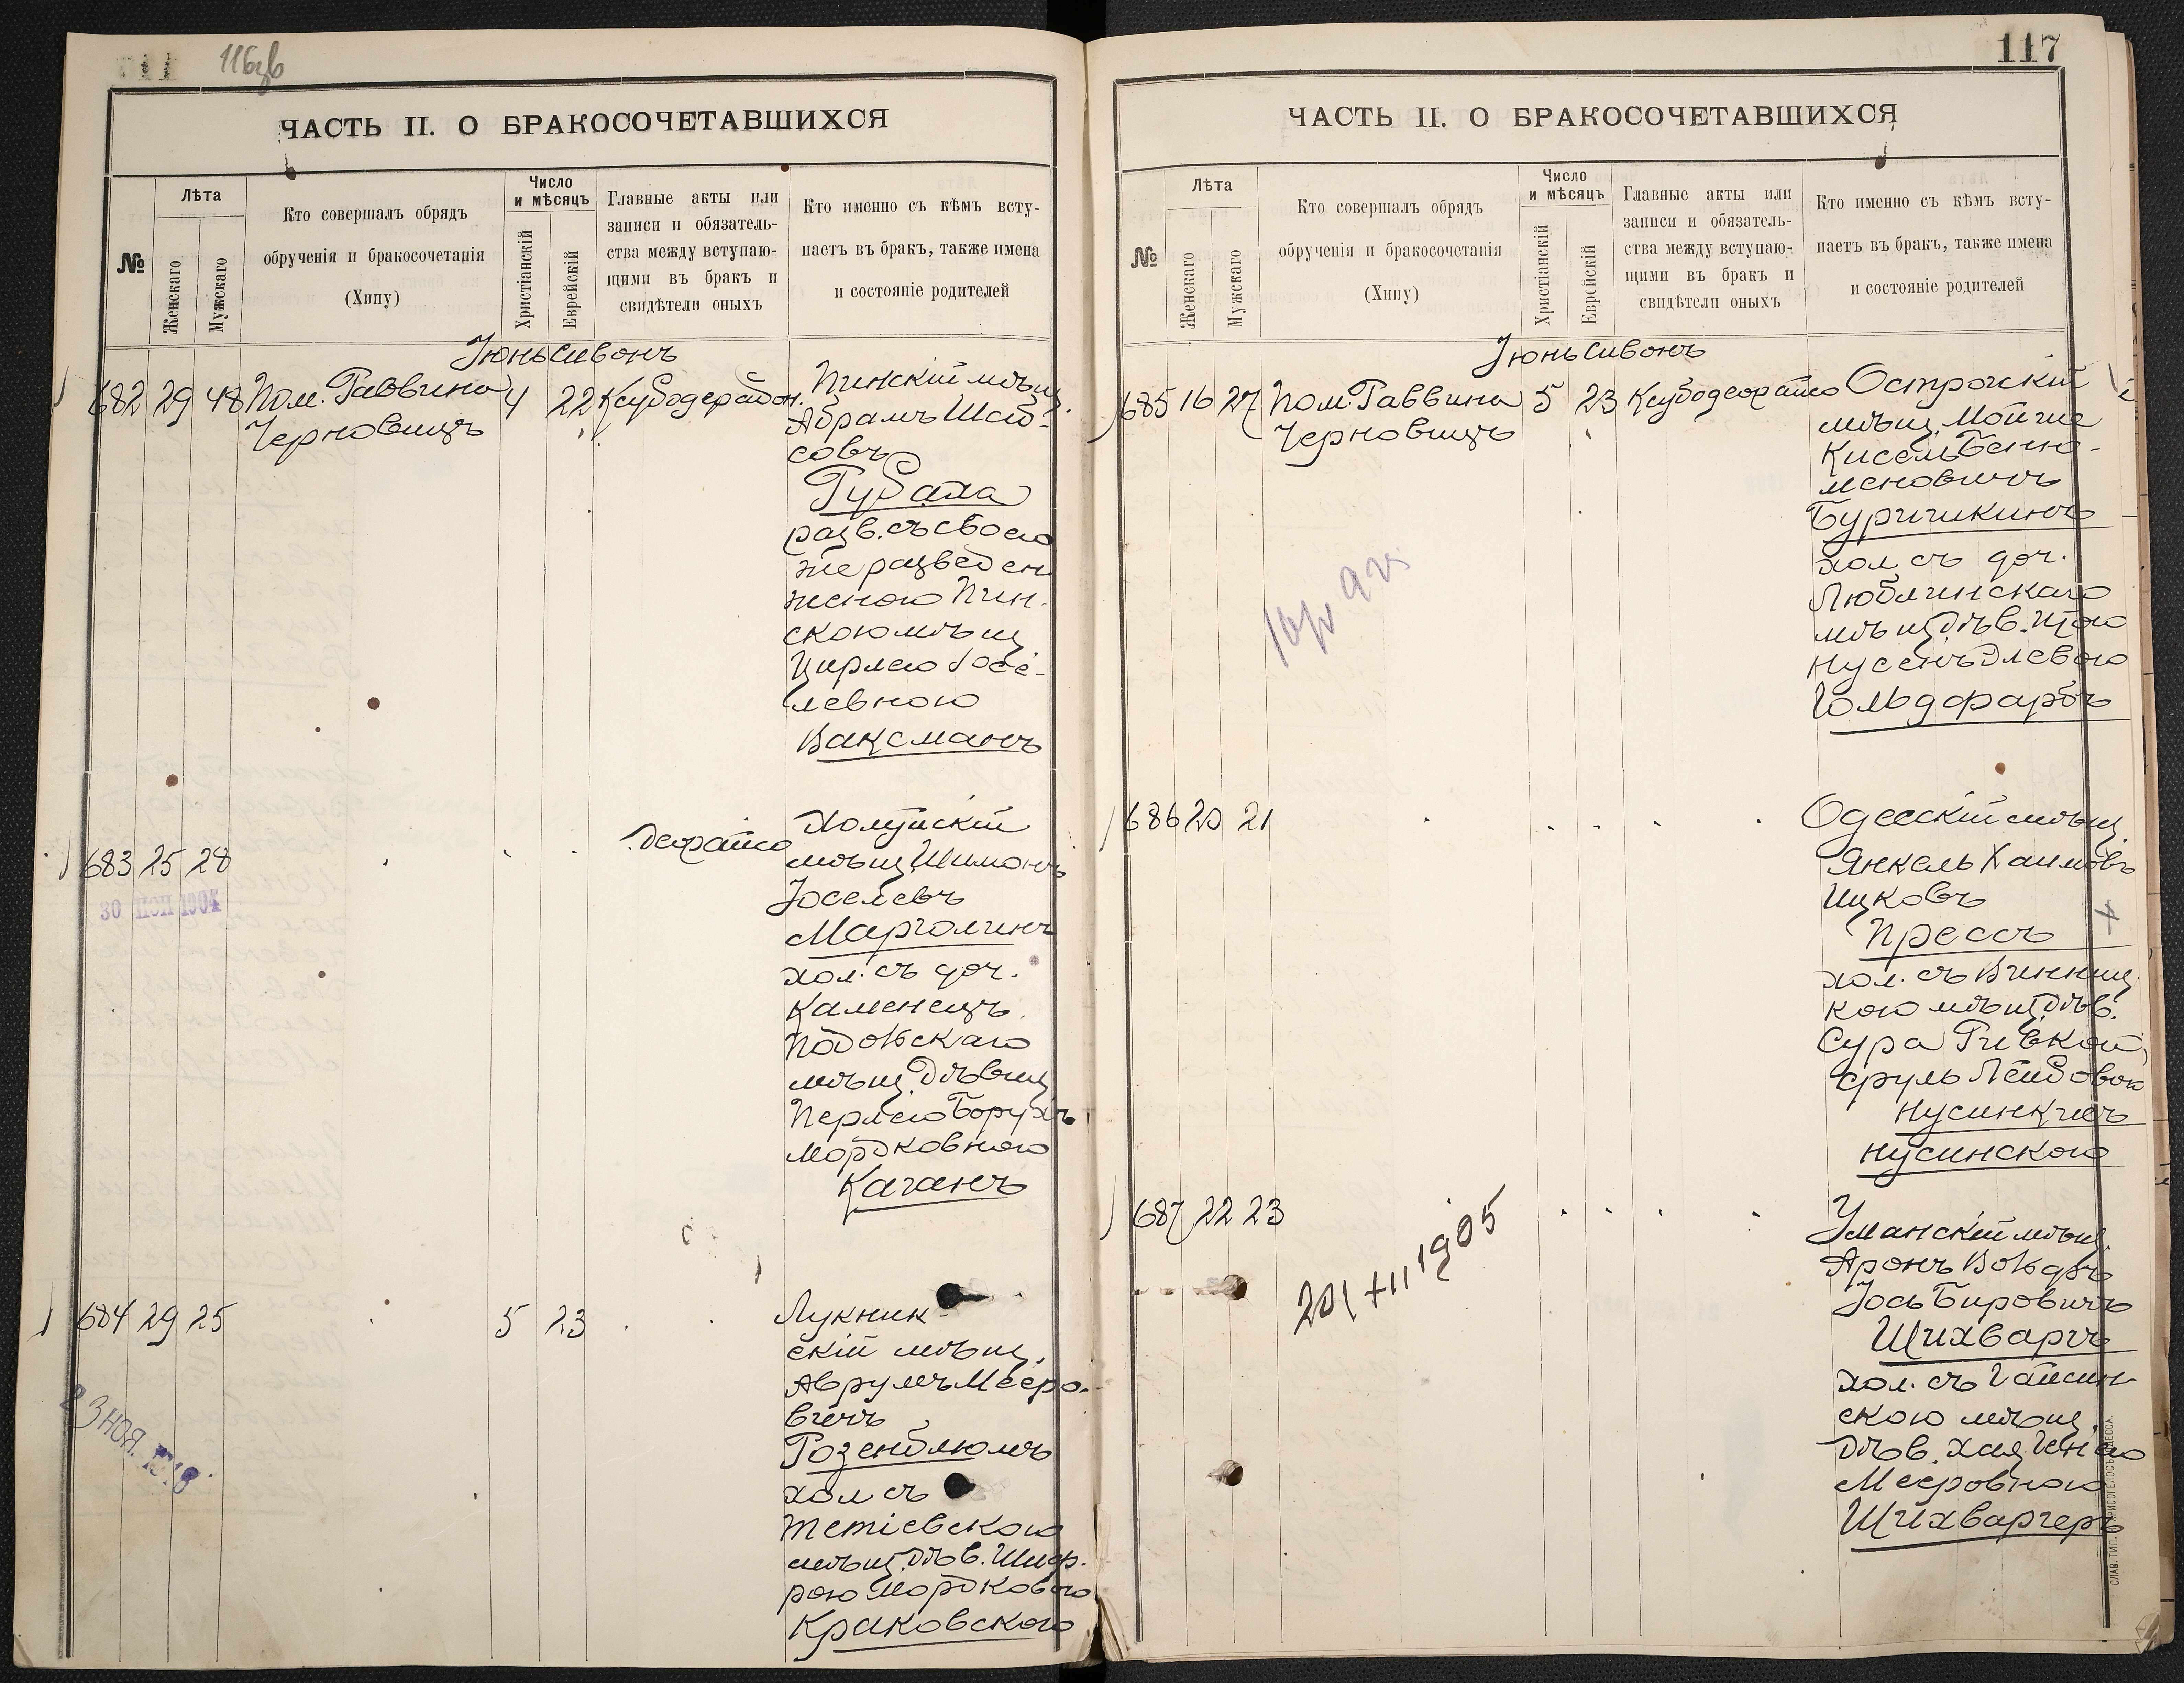 116об
ЧАСТЬ II. О БРАКОСОЧЕТАВШИХСЯ
№
Лѣта
Женскаго
Мужскаго
Кто совершалъ обрядъ
обрученія и бракосочетанія
(Хипу)
Число
и мѣсяцъ
Христіанскій
Еврейскій
Главные акты или
записи и обязатель-
ства между вступаю-
щими въ бракъ и
свидѣтели оныхъ
Кто именно съ кѣмъ всту-
паетъ въ бракъ, также имена
и состояніе родителей
Іюнь Сивонъ
682 29 48 Пом. Раввина 4 22
Черновицъ
Пинскій мѣщ.
Абрамъ
совъ
разв. съ своею
же разведен.
женою Пин-
скою мѣщ.
Цирлею Іосе-
левною
Ваксманъ
683 25 28
30 1904
мѣщ. Шимонъ
Іоселевъ
Марголинъ
хол. съ доч.
Каменецъ
Подольскаго
мѣщ. Дѣвиц.
Перлею Борухъ
Мордковною
Каганъ
684 29 25 5 23
23 НОЯ.
Лукник-
скій мѣщ.
Аврумъ Мееро-
вичъ
Розенблюмъ
хол. съ
Тетіевскою
мѣщ. дѣв. Шиф-
рою Мордковною
Краковскою
117
ЧАСТЬ II. О БРАКОСОЧЕТАВШИХСЯ
№
Лѣта
Женскаго
Мужскаго
Кто совершалъ обрядъ
обрученія и бракосочетанія
(Хипу)
Число
и мѣсяцъ
Христіанскій
Еврейскій
Главные акты или
записи и обязатель-
ства между вступаю-
щими въ бракъ и
свидѣтели оныхъ
Кто именно съ кѣмъ всту-
паетъ въ бракъ, также имена
и состояніе родителей
Іюнь Сивонъ
685 16 27 Пом. Раввина 5 23
Черновицъ
Острожскій
мѣщ. Мойше
Кисель Бенья-
меновичъ
Бурчикинъ
хол. съ доч.
Люблинскаго
мѣщ. дѣв.
Гольдфарбъ
686 20 21
Одесскій мѣщ.
Янкель Хаимовъ
Ицковъ
Прессъ
хол. съ Винниц-
кою мѣщ. дѣв.
Сура Ривкой
Сруль Лейбовою
Нусинкисъ
Нусинскою
687 22 23
20/XII 1905
Уманскій мѣщ.
Аронъ Вольфъ
Іось Бировичъ
Шихваргъ
хол. съ Гайсин-
скою мѣщ.
дѣв. Хая
Мееровною
Шихваргеръ